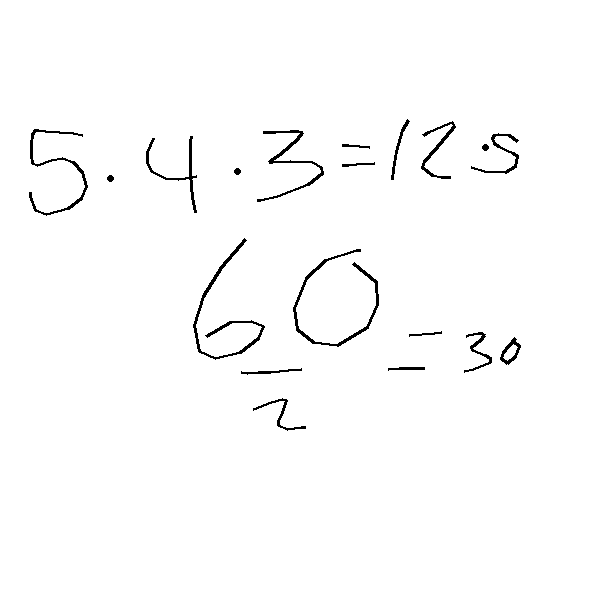 5·4·3=12·5
60
— = 30
2